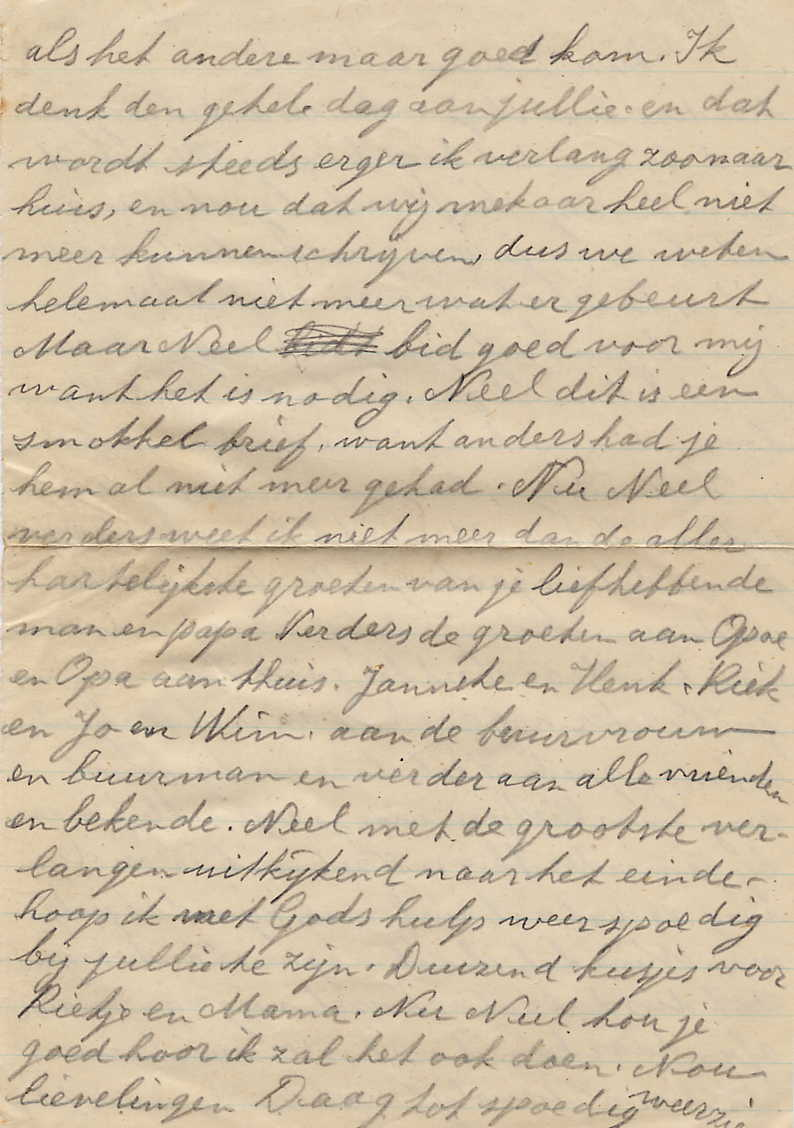 als het andere maar goed kom. Ik
denk den gehele dag aan jullie. en dat
wordt steeds erger ik verlang zoo naar
huis, en nou dat wij mekaar heel niet
meer kunnen schrijven, dus we weten
helemaal niet meer wat er gebeurt
Maar Neel bidt bid goed voor mij
want het is nodig. Neel dit is een
smokkel brief, want anders had je
hem al niet meer gehad. Nu Neel
verders weet ik niet meer dan de aller
hartelijkste groeten van je liefhebbende
man en papa Verders de groeten aan Opoe
en Opa aan thuis. Janneke en Henk. Riek
en Jo en Wim. aan de buurvrouw
en buurman en verder aan alle vrienden
en bekende. Neel met de grootste ver-
langen uitkijkend naar het einde-
hoop ik met Gods hulp weer spoedig
bij jullie te zijn. Duizend kusjes voor
Rietje en Mama. Nu Neel hou je
goed hoor ik zal het ook doen. Nou
lievelingen Daag tot spoedig weerzie